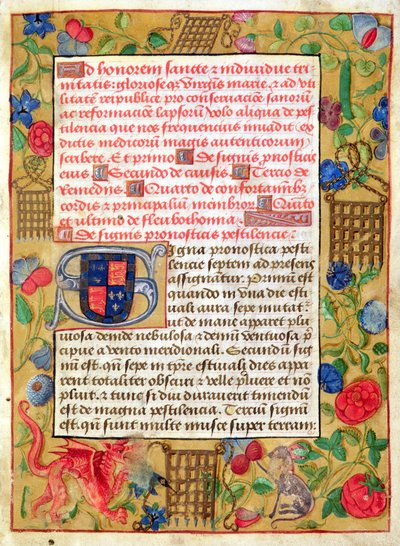 Ad honorem sancte ⁊ indiuidue tri
nitatis: gloriose q̃ Virginis marie, ⁊ ad vti
litatē reipublice pro conseruacōe sanorū
ac reformacōe lapsorū Volo aliqua de pes
tilencia que nos frequencius inuadit ex
dictis medicorū magis autenticorum
scribere. Et primo De signis pnosticis
eius Secundo de causis Tercio de
remedijs. Quarto de confortam̄btꝫ
cordis ⁊ principaliū membrorꝫ Quīto
et ultimo de fleubothomia.
De signis pronosticis pestilencie:
Signa pronostica pesti
lencie septem ad presens
assignātur. Primū est
quando in vna die esti
uali aura sepe mutat̄:
ut de mane apparet plu
uiosa deinde nebulosa ⁊ demū ventuosa p̄
cipue a vento meridionali. Secundū sig
nū est. qn̄ sepe in tp̄re estiuali dies appa
rent totaliter obscuri ⁊ velle pluere et no
pluit. ⁊ tunc si diu durauerit timendū
est de magna pestilencia. Terciū signū
est. qn̄ sunt multe musce super terram: